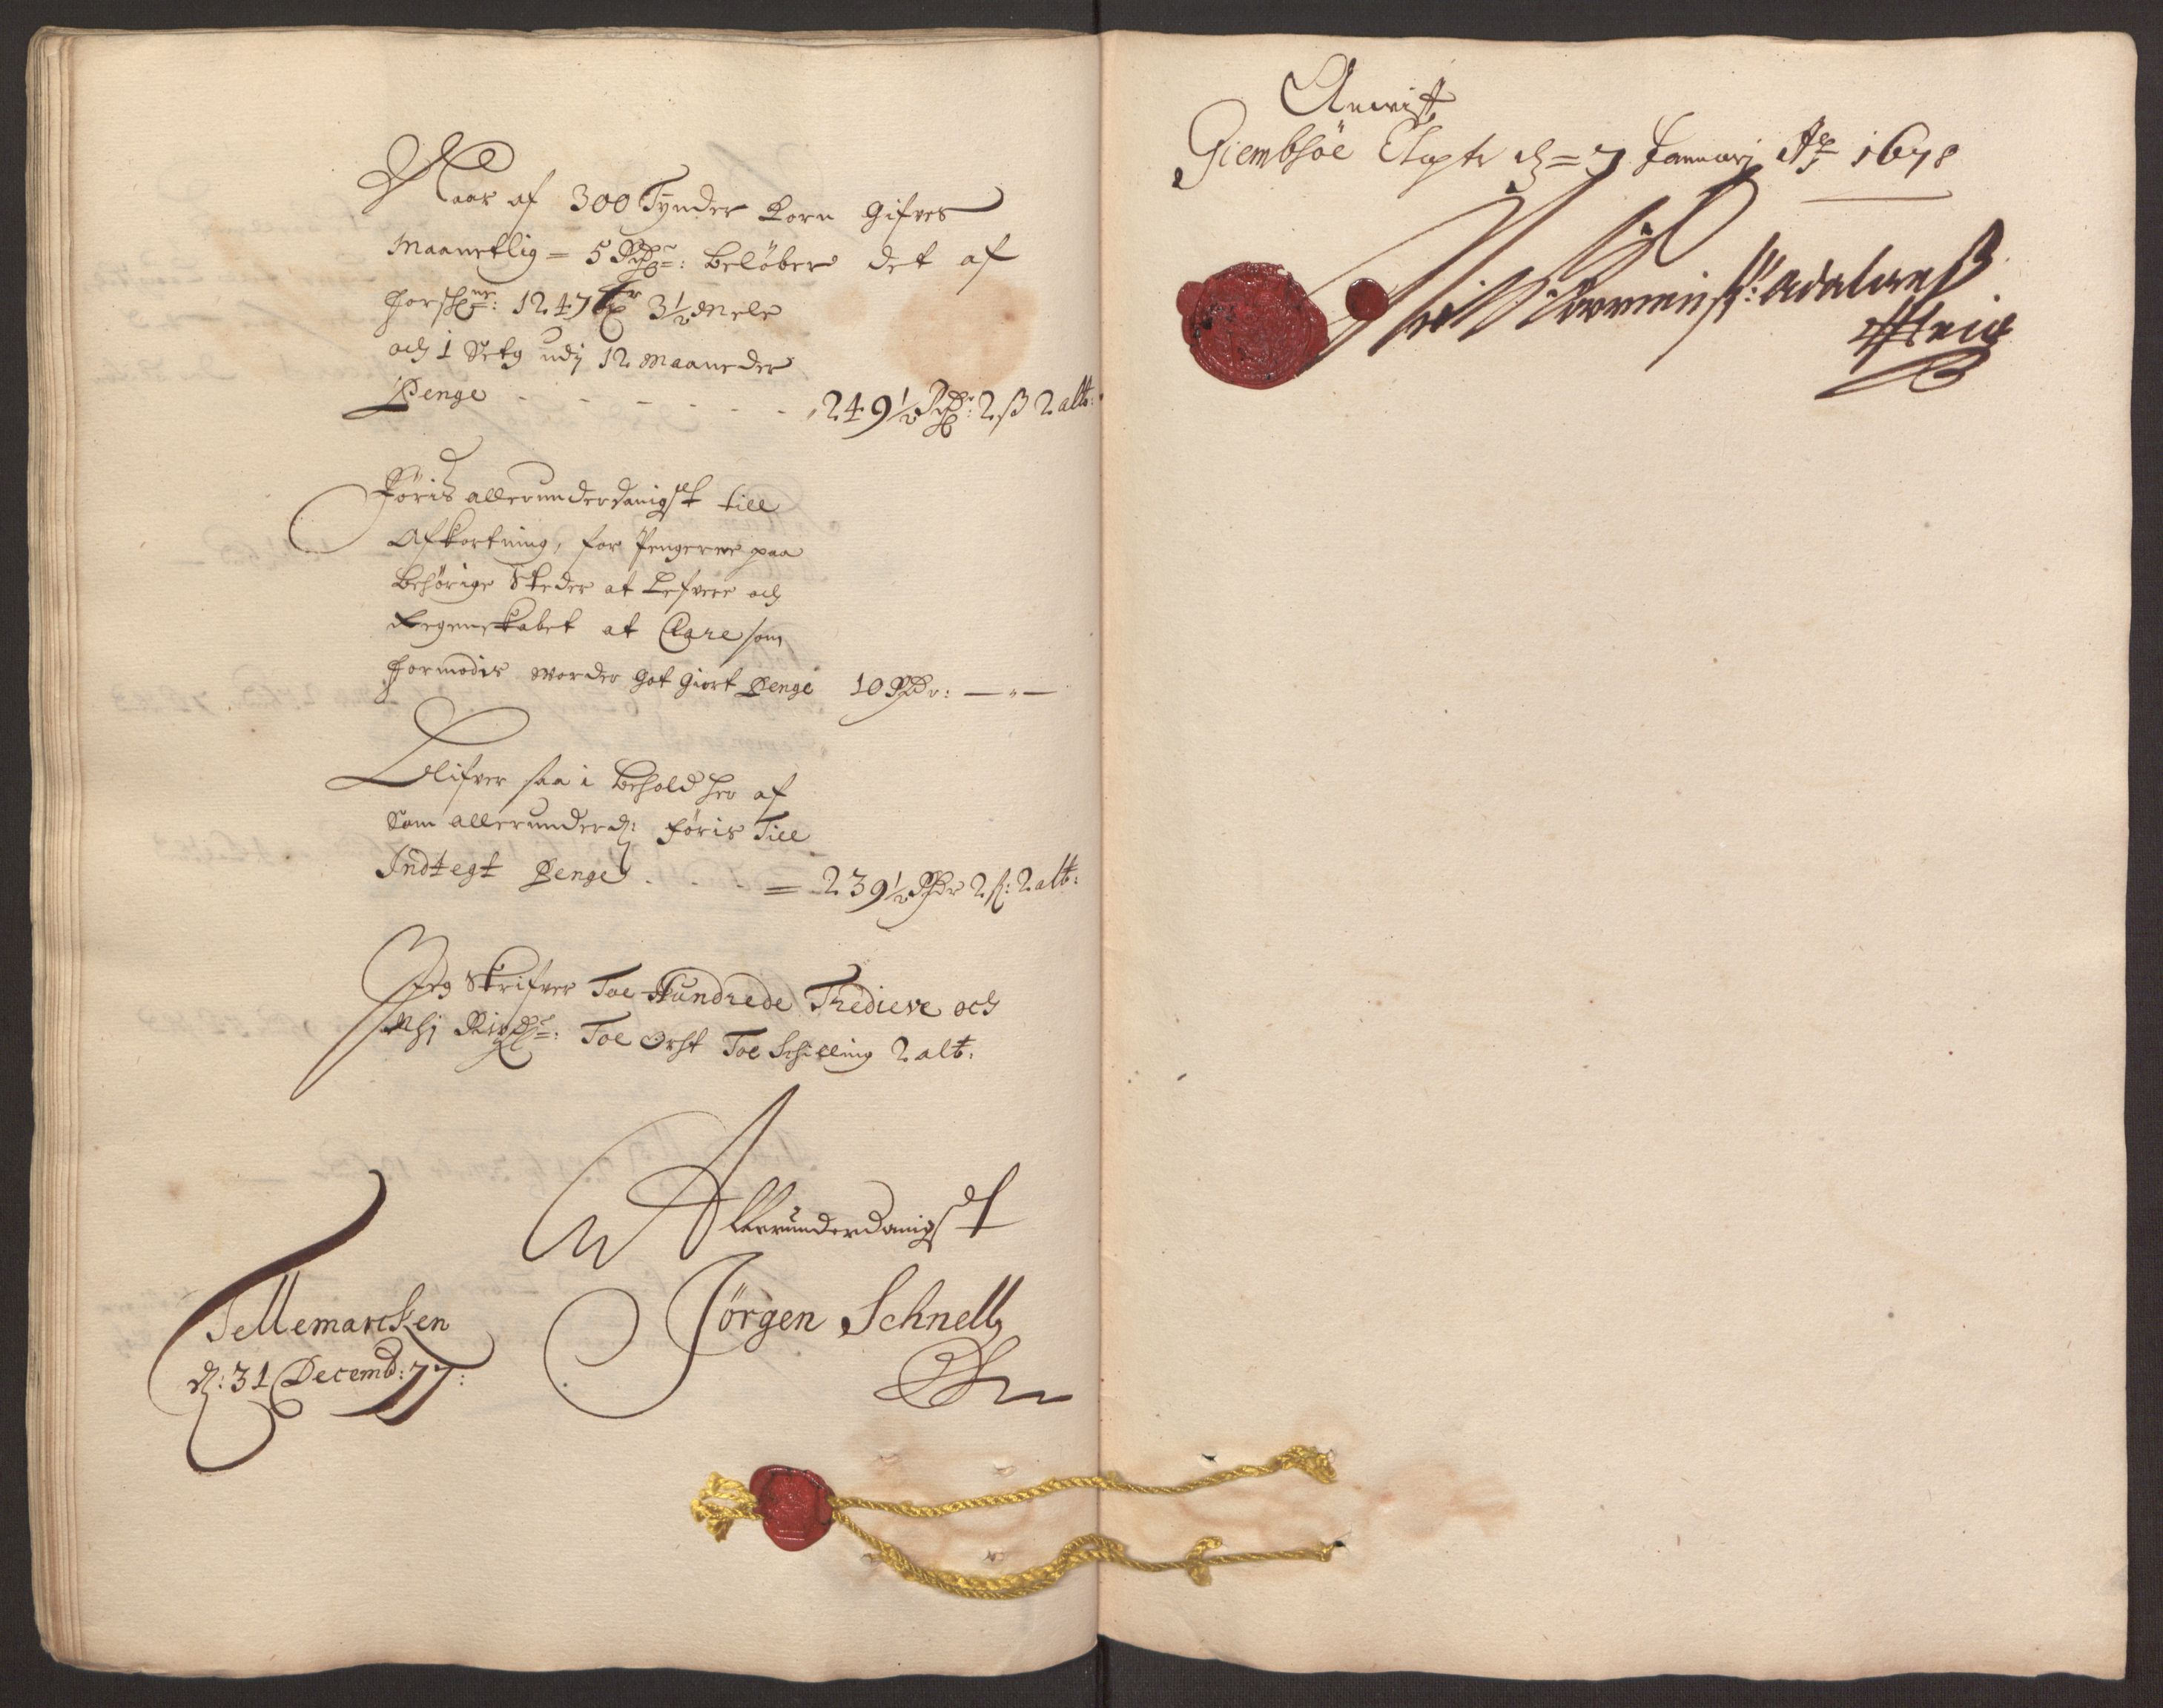 Naar af 300 Tynder Korn Gifves
Maanetlig = 5 Rdr: beløber det af
1247 Tr 3½ Mele
och 1 Setg udj 12 Maaneder
Penge - - - - - - 249½ Rdr: 2 ß 2 alb:
Føris allerunderdanigst till
Afkortning, for Pengerne paa
behørige Steder at Lefvere och
Regenskabet at Clare som
formodis worder got giort Penge 10 Rdr: — " —
Blifver saa i behold her af
som allerunderd: føris Till
Indtegt Penge . . . = 239½ Rdr 2 ß: 2 alb:
Jeg Skrifver Toe Hundrede Tredieve och
Nij Rigdr: Toe Ort Toe Schilling 2 alb:
Allerunderdanigst
Jørgen Schnell
Tellemarcken
d: 31 Decemb: 77:
Anvist
Giembsøe Closter d = 7 Januarj Ao 1678